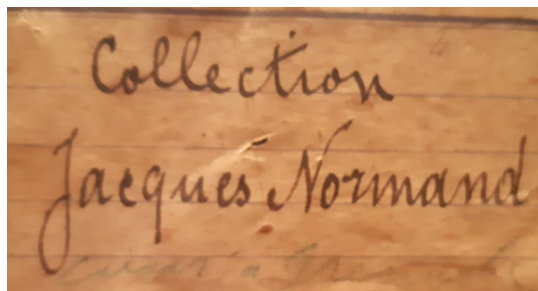 Collection
Jacques Normand